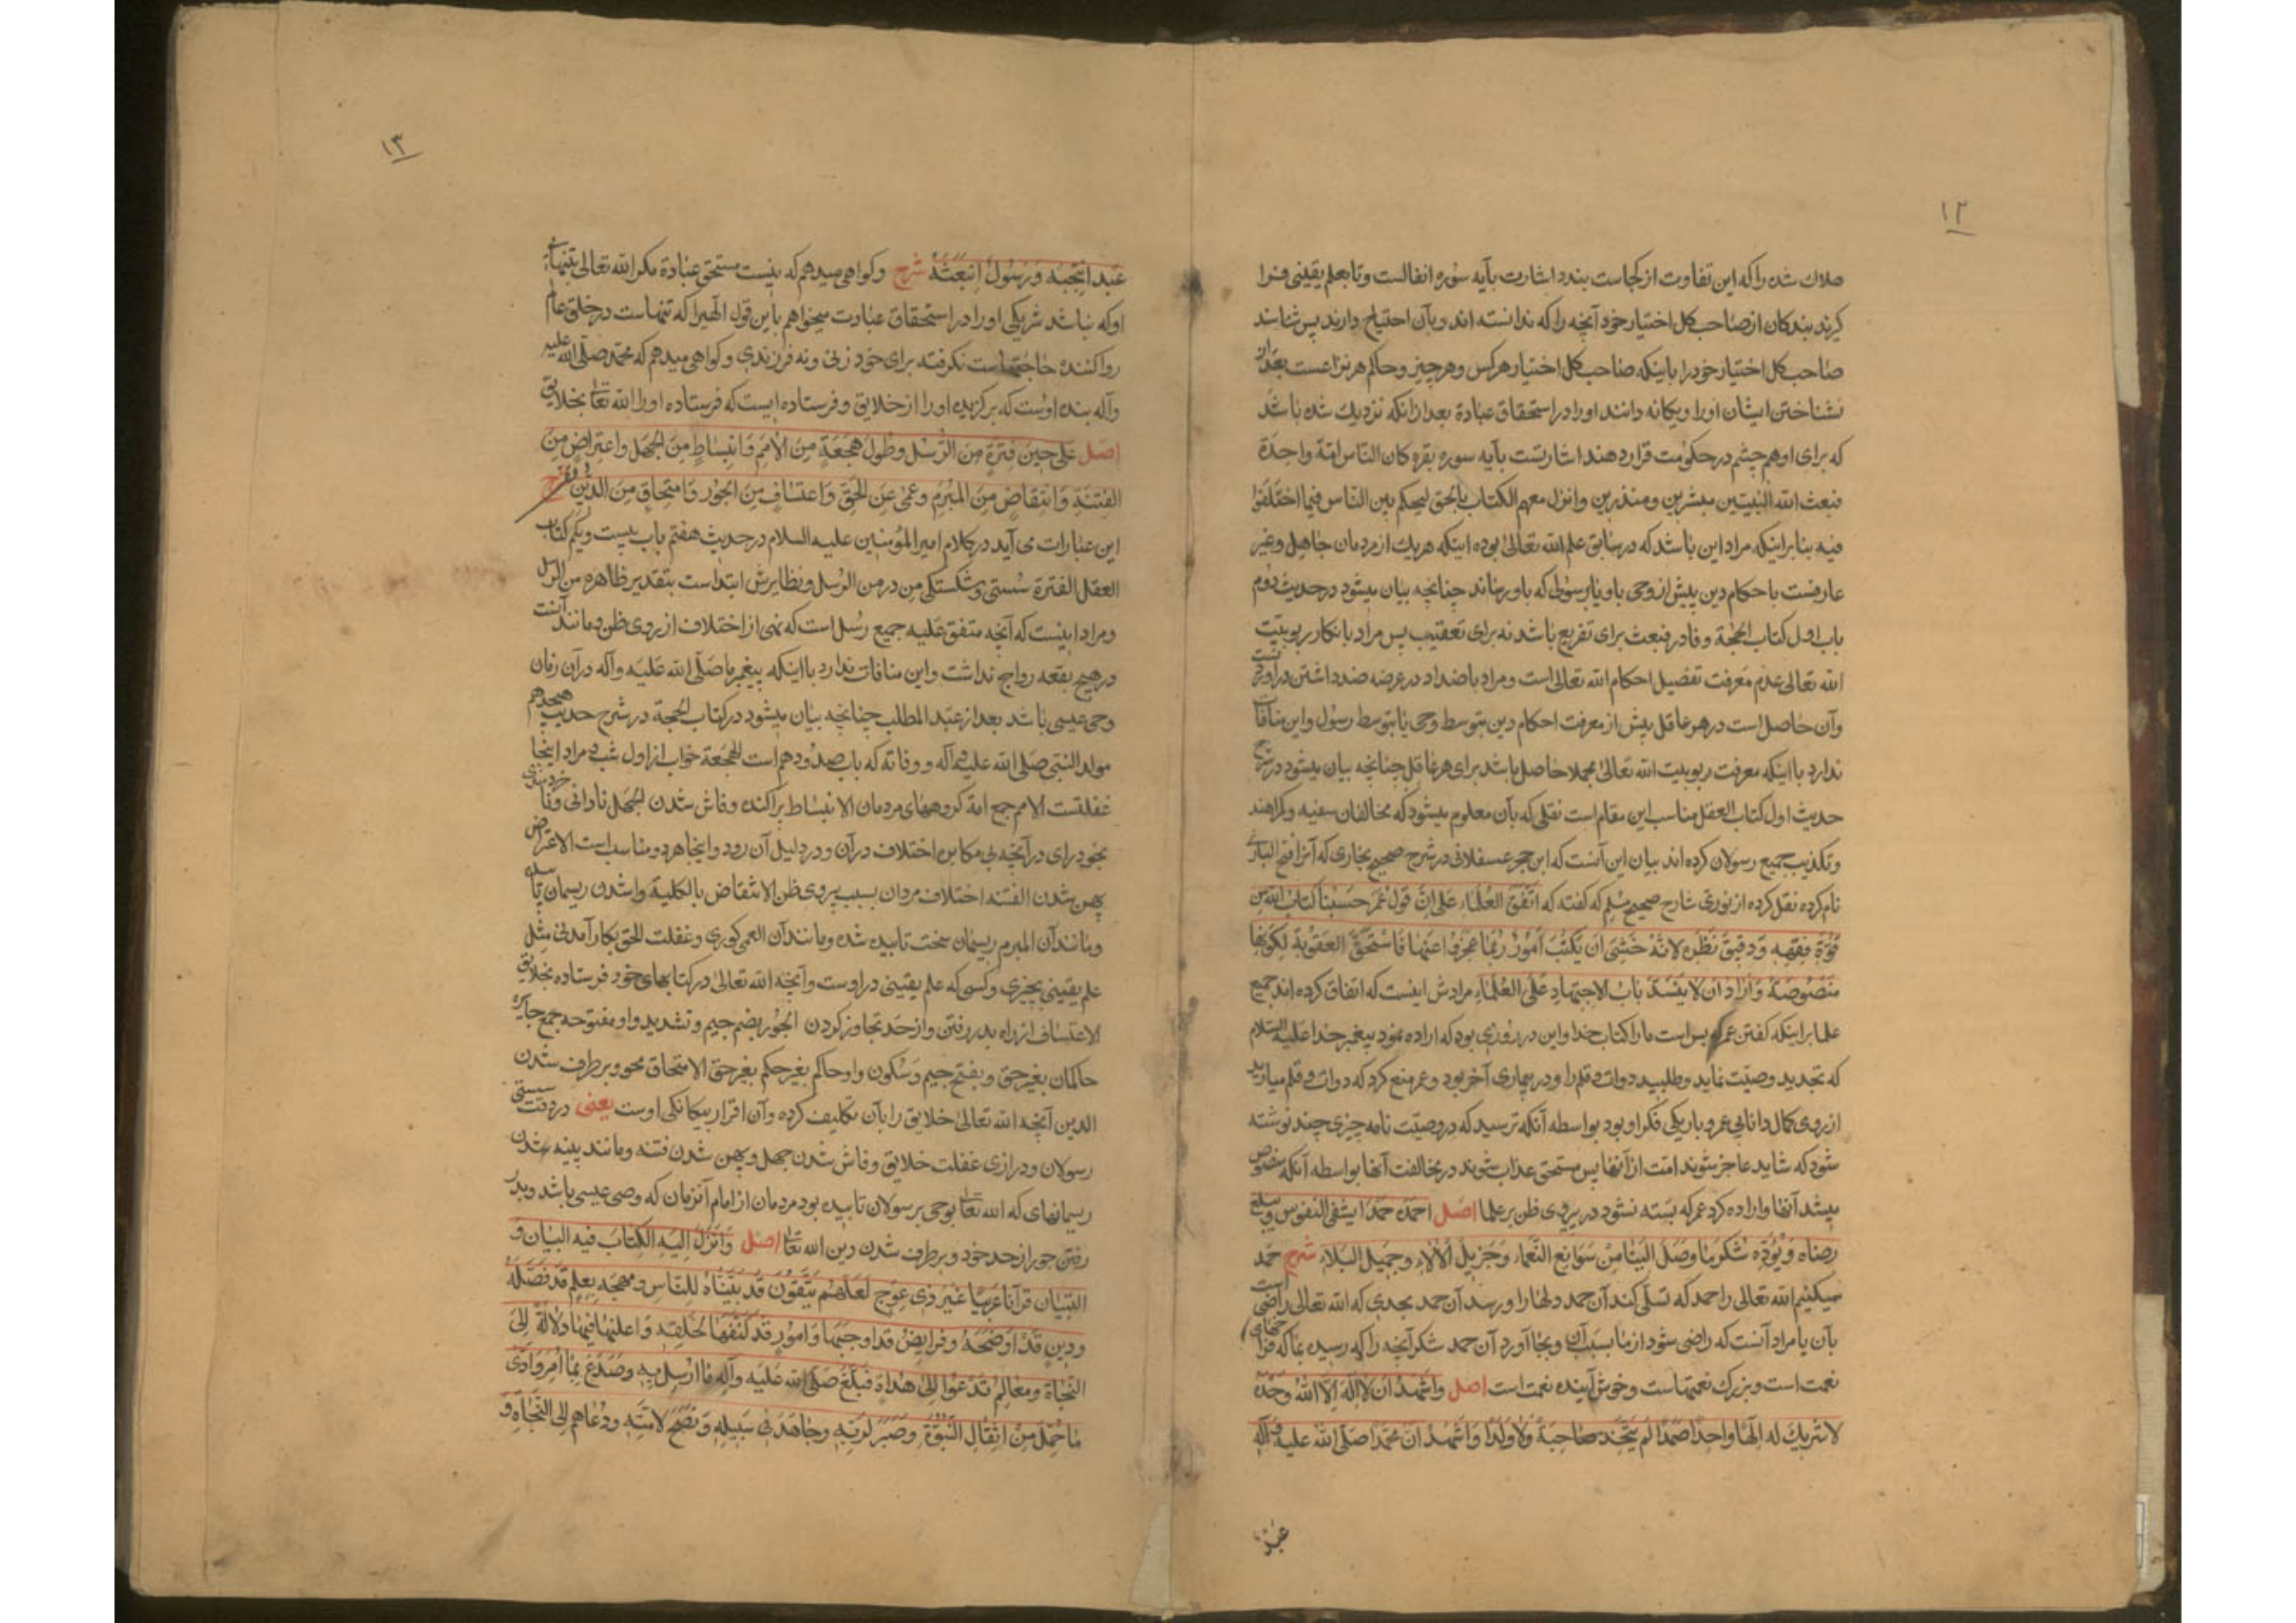 ۱۲
هلاک شده را که این تفاوت از کجاست بندد اشارت بآیه سوره انفالست و تا بعلم یقینی فرا
گیرند بندکان از صاحب کل اختیار خود آنچه را که ندانسته اند و بآن احتیاج دارند پس شناسند
صاحب کل اختیار خود را باینکه صاحب کل اختیار هر کس و هر چیز و حاکم هر نزاعست بعد از
نشناختن ایشان او را و یکانه دانند او را در استحقاق عبادة بعد ازانکه نزدیک شده باشد
که برای او هم چشم در حکومت قرار دهند اشارتست بآیه سوره بقره کان الناس امة واحدة
فبعث الله النبیین مبشرین و منذرین و انزل معهم الکتاب بالحق لیحکم بین الناس فیما اختلفوا
فیه بنابر اینکه مراد این باشد که در سابق علم الله تعالی بوده اینکه هر یک از مردمان جاهل و غیر
عارفست باحکام دین پیش از وحی باو یا برسولی که باو رساند چنانچه بیان میشود در حدیث دوم
باب اول کتاب الحجة و فا در فبعث برای تفریع باشد نه برای تعقیب پس مراد بانکار ربوبیت
الله تعالی عدم معرفت تفصیل احکام الله تعالی است و مراد باضداد در عرضه ضد داشتن در اوریست
وآن حاصل است در هر عاقل پیش از معرفت احکام دین بتوسط وحی یا بتوسط رسول و این منافات
ندارد با اینکه معرفت ربوبیت الله تعالی مجملا حاصل باشد برای هر عاقل چنانچه بیان میشود در شرح
حدیث اول کتاب العقل مناسب این مقام است نقلی که بآن معلوم میشود که مخالفان سفیه و کمراهند
و تکذیب جمیع رسولان کرده اند بیان این آنست که ابن حجر عسقلانی در شرح صحیح بخاری که آنرا فتح الباری
نام کرده نقل کرده از نوری شارح صحیح مسلم که کفته که اتفق العلماء علی ان قول عمر حسبنا کتاب الله من
قوة فقهه و دقیق نظره لانه خشی ان یکتب امور ربما عجزوا عنها فاستحق العقوبة لکونها
منصوصة و اراد ان لا ینسد باب الاجتهاد علی العلماء مرادش اینست که اتفاق کرده اند جمیع
علما بر اینکه کفتن عمر که بس است ما را کتاب خدا و این در روزی بود که اراده نمود پیغمبر خدا علیه السلام
که تجدید وصیت نماید و طلبید دوات و قلم را و در بیماری آخر بود و عمر منع کرد که دوات و قلم میارید
از روی کمال دانایی عمر و باریکی فکر او بود بواسطه آنکه ترسید که در وصیت نامه چیزی چند نوشته
شود که شاید عاجز شوند امت از آنها پس مستحق عذاب شوند در مخالفت آنها بواسطه آنکه منصوص
میشد آنها و اراده کرد عمر که بسته نشود در پیروی ظن بر علما اصل احمده حمدا یشفی النفوس و یبلغ
رضاه و یؤدی شکر ما وصل الینا من سوابغ النعماء و جزیل الآلاء و جمیل البلاء شرح حمد
میکنیم الله تعالی را حمد که تسلی کند آن حمد دلها را و رسد آن حمد بحدی که الله تعالی راضی است
بآن یا مراد آنست که راضی شود از ما بسبب آن و بجا آورد آن حمد شکر آنچه را که رسیده بما که فراخهای
نعمت است و بزرک نعمتهاست و خوش آینده نعمت است اصل و اشهد ان لا اله الا الله وحده
لا شریک له الها واحدا صمدا لم یتخذ صاحبة ولا ولدا و اشهد ان محمدا صلی الله علیه و آله
عبد
۱۳
عبد انتجبه و رسول ابتعثه شرح و کواهی میدهم که نیست مستحق عبادة مکر الله تعالی بتنهایی
او که نباشد شریکی او را در استحقاق عبادت میخواهم باین قول الهیرا که تنهاست در خلق عالم
روا کننده حاجتهاست نکرفته برای خود زنی و نه فرزندی و کواهی میدهم که محمد صلی الله علیه
و آله بنده اوست که برکزیده او را از خلایق و فرستاده ایست که فرستاده او را الله تعا بخلایق
اصل علی حین فترة من الرسل و طول هجعة من الامم و انبساط من الجهل و اعتراض من
الفتنة و انتقاض من المبرم و عمی عن الحق و اعتساف من الجور و امتحاق من الدین شرح
این عبارات می آید در کلام امیر المؤمنین علیه السلام در حدیث هفتم باب بیست و یکم کتاب
العقل الفترة سستی و شکستکی من در من الرسل و نظایرش ابتداست بتقدیر ظاهره من الرسل
و مراد اینست که آنچه متفق علیه جمیع رسل است که نهی از اختلاف از روی ظن و مانند آنست
در هیچ بقعه رواج نداشت و این منافات ندارد با اینکه پیغمبر ما صلی الله علیه و آله در آن زمان
وحی عیسی باشد بعد از عبد المطلب چنانچه بیان میشود در کتاب الحجة در شرح حدیث هیجدهم
مولد النبی صلی الله علیه و آله و وفاته که باب صد و دهم است الهجعة خواب از اول شب و مراد اینجا
غفلتست الامم جمع امة کروههای مردمان الانبساط پراکنده و فاش شدن الجهل نادانی و خردمندی
بخود رای در آنچه بی مکابره اختلاف در آن و در دلیل آن رود و اینجا هر دو مناسب است الاعتراض
پهن شدن الفتنه اختلاف مردان بسبب پیروی ظن الانتقاض بالکلیة واشدن ریسمان تابیده
و مانند آن المبرم ریسمان سخت تابیده شده و مانند آن العمی کوری و غفلت الحق بکار آمدنی مثل
علم یقینی بچیزی و کسی که علم یقینی در اوست و آنچه الله تعالی در کتابهای خود فرستاده بخلایق
الاعتساف از راه بدر رفتن و از حد تجاوز کردن الجور بضم جیم و تشدید واو مفتوحه جمع جایره
حاکمان بغیر حق و بفتح جیم و سکون واو حاکم بغیر حکم بغیر حق الامتحاق محو و برطرف شدن
الدین آنچه الله تعالی خلایق را بآن تکلیف کرده و آن اقرار بیکانکی اوست یعنی در وقت سستی
رسولان و درازی غفلت خلایق و فاش شدن جهل و پهن شدن فتنه و مانند پنبه شدن
ریسمانهای که الله تعا بوحی بر رسولان تابیده بود مردمان از امام آنزمان که وصی عیسی باشد و بدر
رفتن جور از حد خود و برطرف شدن دین الله تعا اصل و انزل الیه الکتاب فیه البیان و
التبیان قرآنا عربیا غیر ذی عوج لعلهم یتقون قد بیناه للناس و نهجه بعلم قد فصله
و دین قد اوضحه و فرایض قد اوجبها و امور قد کشفها لخلقه و اعلنها فیها دلالة الی
النجاة و معالم تدعوا الی هداه فبلغ صلی الله علیه و آله ما ارسل به و صدع بما امر و ادی
ما حمل من اثقال النبوة و صبر لربه و جاهد فی سبیله و نصح لامته و دعاهم الی النجاة و